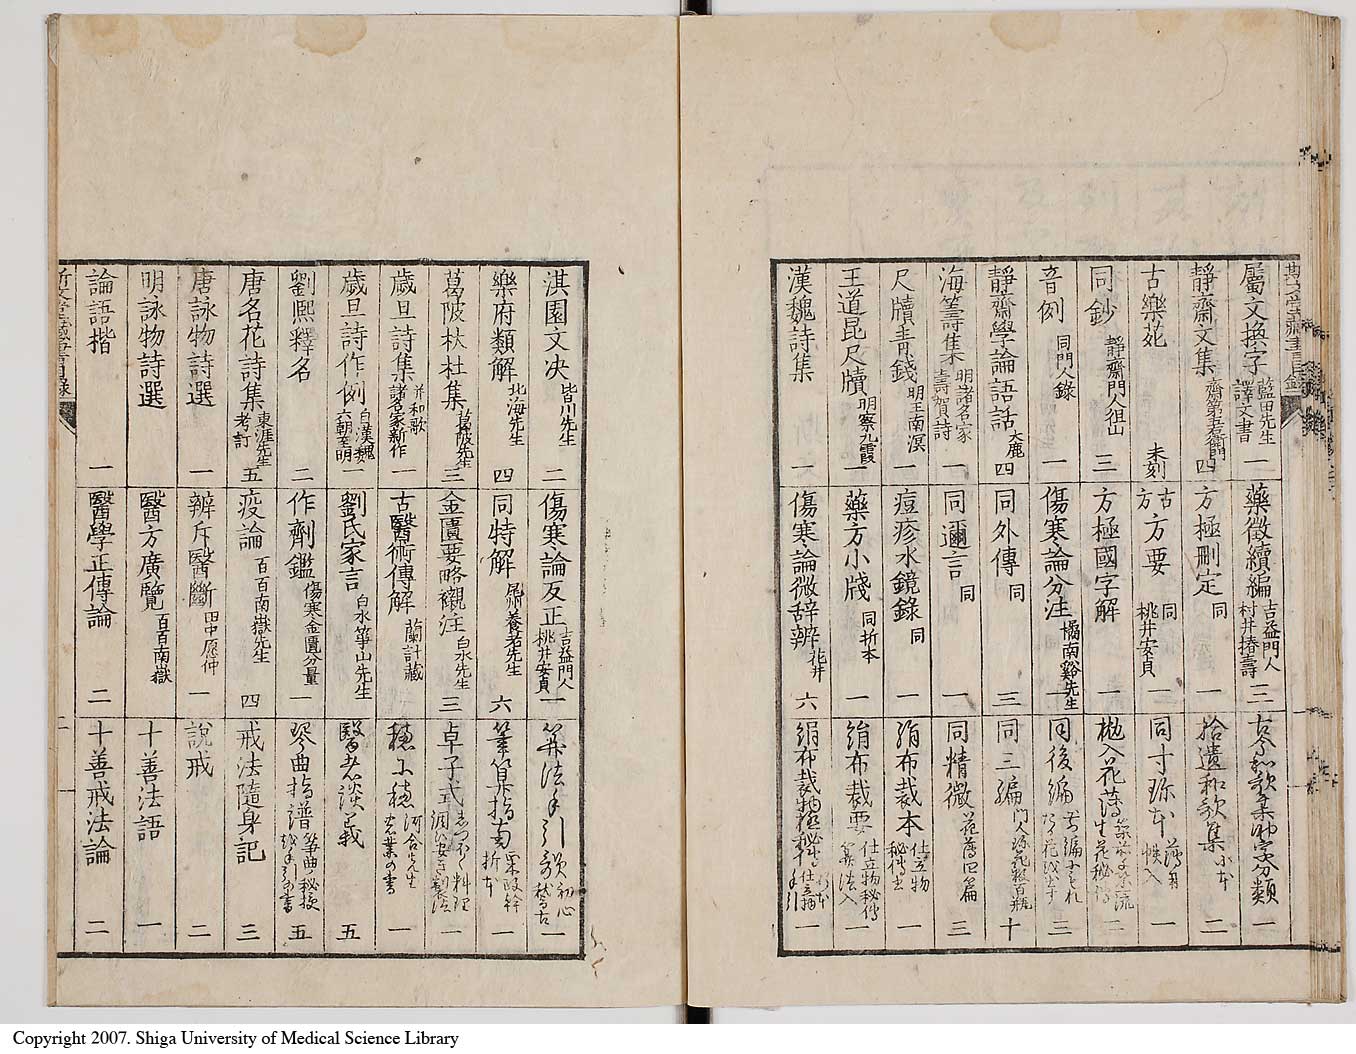 斯文堂藏書目錄
屬文換字 藍田先生譯文書 一
靜齋文集 齋藤五右衛門 四
古樂苑 未刻
同鈔 靜齋門人徂山 三
音例 同門人錄 一
靜齋學論語話 大鹿 四
海籌集 明諸名家壽賀詩 一
尺牘青錢 明王南溟 一
王道昆尺牘 明蔡九霞 一
漢魏詩集 一
藥徵續編 吉益門人村井椿壽 三
方極刪定 同 一
古方方要 同桃井安貞 一
方極國字解 一
傷寒論分注 橘南谿先生 一
同外傳 同 三
同邇言 同 一
痘疹水鏡錄 同 一
藥方小牋 同折本 一
傷寒論微辞辨 花井 六
古今和歌集四字分類 一
拾遺和歌集 小本 二
同寸珎本 帙入 一
抛入花薄 二
同後編 三
同三編 十
同精微 花薄四篇 三
絹布裁本 仕立物秘傳 一
絹布裁要 仕立物秘傳算法入 一
絹布裁物極秘 一
淇園文决 皆川先生 二
樂府類解 北海先生 四
葛陂杕杜集 葛陂先生 三
歲旦詩集 并和歌諸名家新作 一
歲旦詩作例 自漢魏六朝至明 一
劉熈釋名 二
唐名花詩集 東涯先生考訂 五
唐詠物詩選 一
明詠物詩選
論語揩 一
傷寒論反正 吉益門人桃井安貞 一
同特解 養花先生 六
金匱要略襯注 白水先生 三
古醫術傳解 蘭計藏
劉氏家言 白水箏山先生
作劑鑑 傷寒金匱分量 一
疫論 百百南嶽先生 四
辨斥醫斷 田中愿仲 一
醫方廣覽 百百南嶽
醫學正傳論 二
算法手引歌 初心稽古 一
筆算指南 折本 一
卓子式 しつほく料理 一
穗に穗 河合先生農業の書 一
醫者談義 五
琴曲指譜 箏曲秘授 五
戒法隨身記 三
說戒 二
十善法語 一
十善戒法論 二
斯文堂藏書目錄
二
Copyright 2007. Shiga University of Medical Science Library